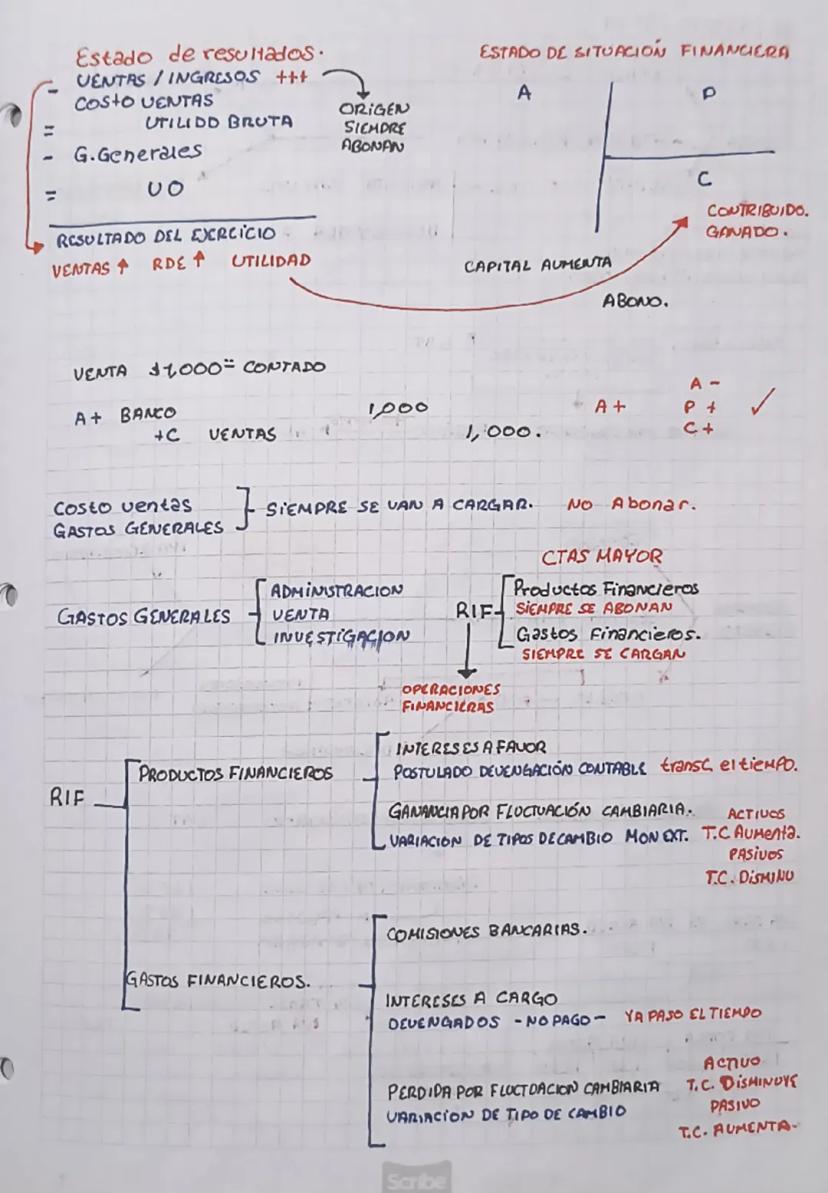 Estado de resultados.
- VENTAS / INGRESOS +++
COSTO VENTAS
= UTILIDO BRUTA
- G.Generales
= UO
RESULTADO DEL EJERCICIO
VENTAS ↑ RDE ↑ UTILIDAD
ORIGEN
SIEMPRE
ABONAN
ESTADO DE SITUACIÓN FINANCIERA
A P
C
CONTRIBUIDO.
GANADO.
CAPITAL AUMENTA
ABONO.
VENTA $1,000= CONTADO
A+ BANCO 1,000
+C VENTAS 1,000.
A+
A -
P + ✓
C +
Costo ventas
GASTOS GENERALES
SIEMPRE SE VAN A CARGAR. NO Abonar.
GASTOS GENERALES
ADMINISTRACION
VENTA
INVESTIGACION
CTAS MAYOR
RIF
Productos Financieros
SIEMPRE SE ABONAN
Gastos Financieros.
SIEMPRE SE CARGAN
OPERACIONES
FINANCIERAS
RIF
PRODUCTOS FINANCIEROS
INTERESES A FAVOR
POSTULADO DEVENGACIÓN CONTABLE transc, el tiempo.
GANANCIA POR FLUCTUACIÓN CAMBIARIA.
VARIACION DE TIPOS DE CAMBIO MON EXT.
ACTIVOS
T.C Aumenta.
PASIVOS
T.C. DISMINU
GASTOS FINANCIEROS.
COMISIONES BANCARIAS.
INTERESES A CARGO
DEVENGADOS - NO PAGO - YA PASO EL TIEMPO
PERDIDA POR FLUCTUACION CAMBIARIA
VARIACION DE TIPO DE CAMBIO
ACTIVO
T.C. DISMINUYE
PASIVO
T.C. AUMENTA-
Scribe